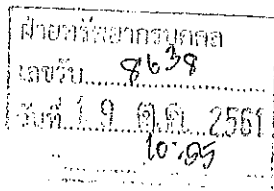 ฝ่ายทรัพยากรบุคคล
เลขรับ 8638
วันที่ 19 ต.ค. 2561
10.05